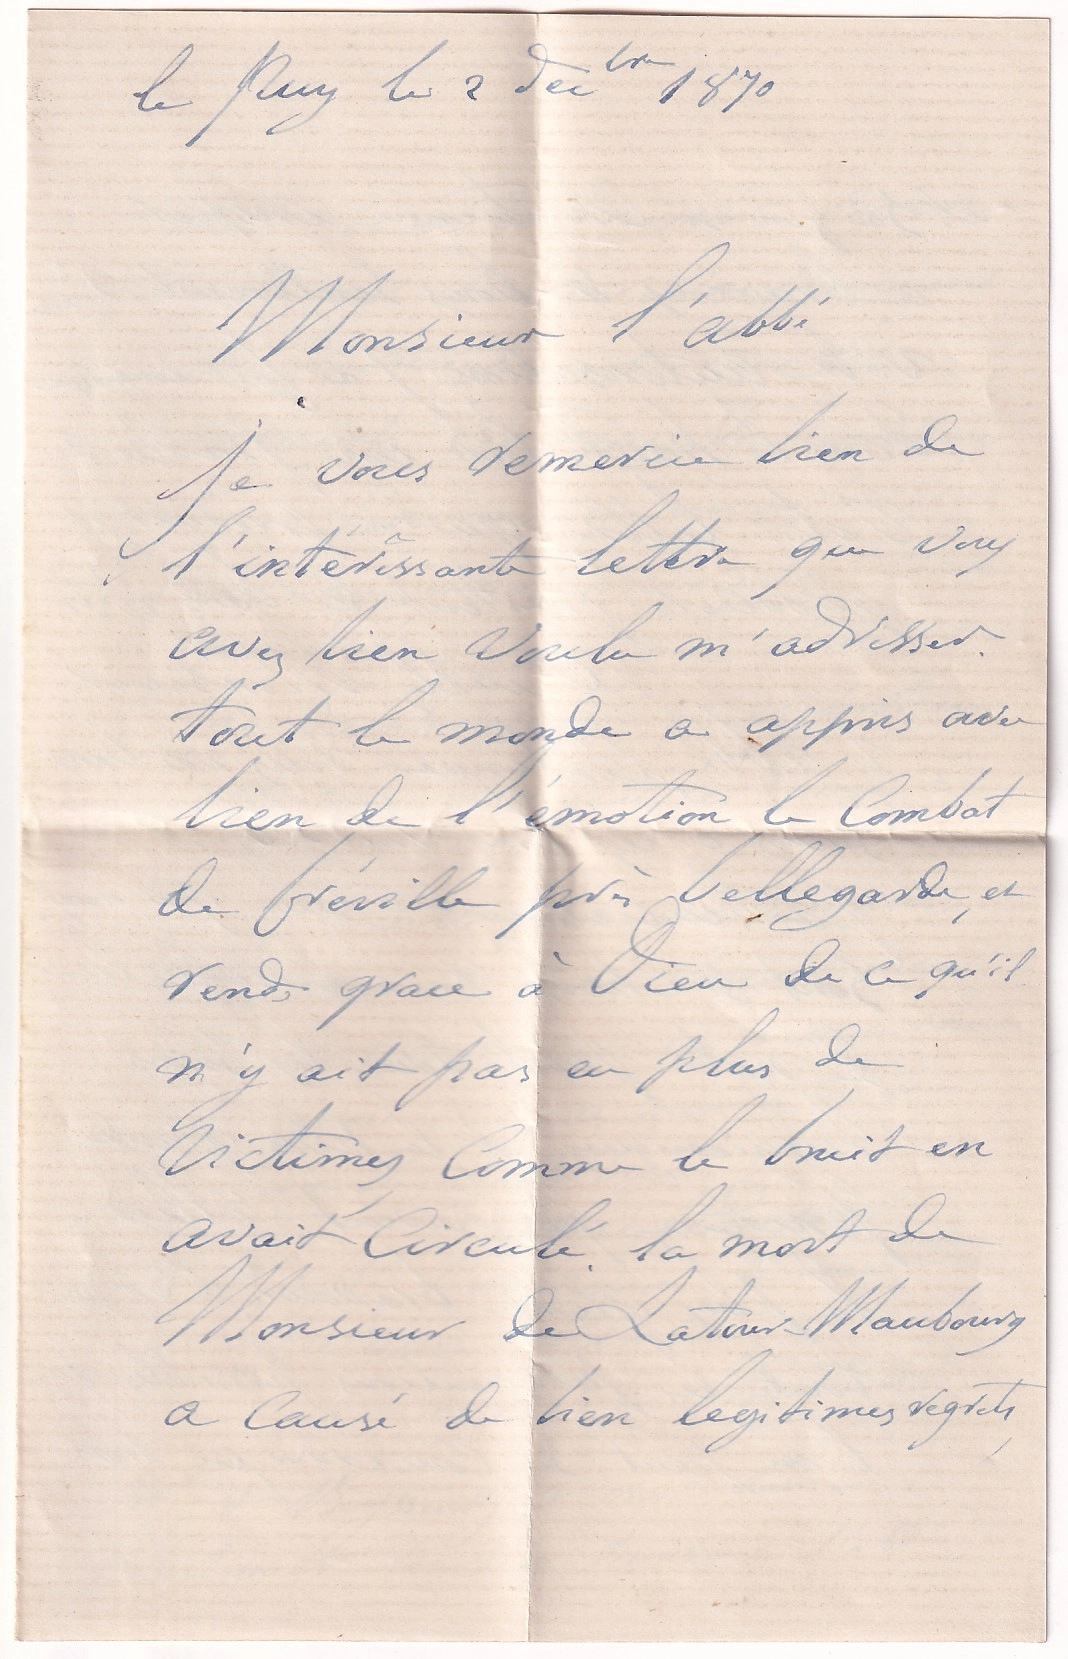 le Puy le 2 Decbre 1870
Monsieur l'abbé
Je vous remercie bien de
l'intérêssante lettre que vous
avez bien voulu m'adresser.
tout le monde a appris avec
bien de l'émotion le Combat
de fréville près bellegarde, et
rend grace à Dieu de ce qu'il
n'y ait pas eu plus de
Victimes Comme le bruit en
avait Circulé. la mort de
Monsieur de Latour-Maubourg
a Causé de bien legitimes regrets,